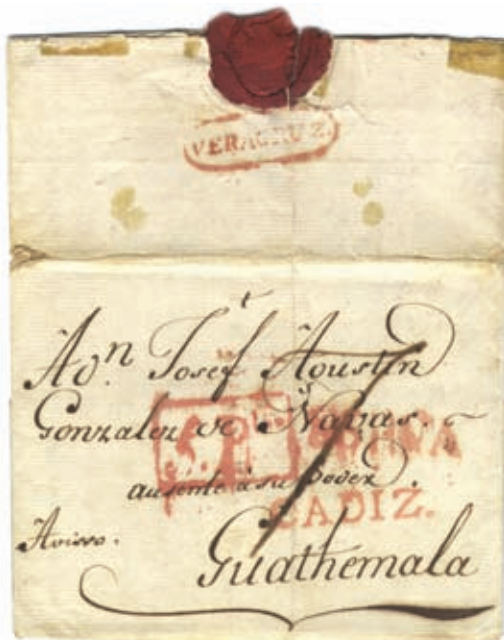 VERACRUZ.
t
A Dn. Josef Agustin
Gonzalez de Navas.
ausente à su Poder.
CADIZ.
Avisso.
Guathemala